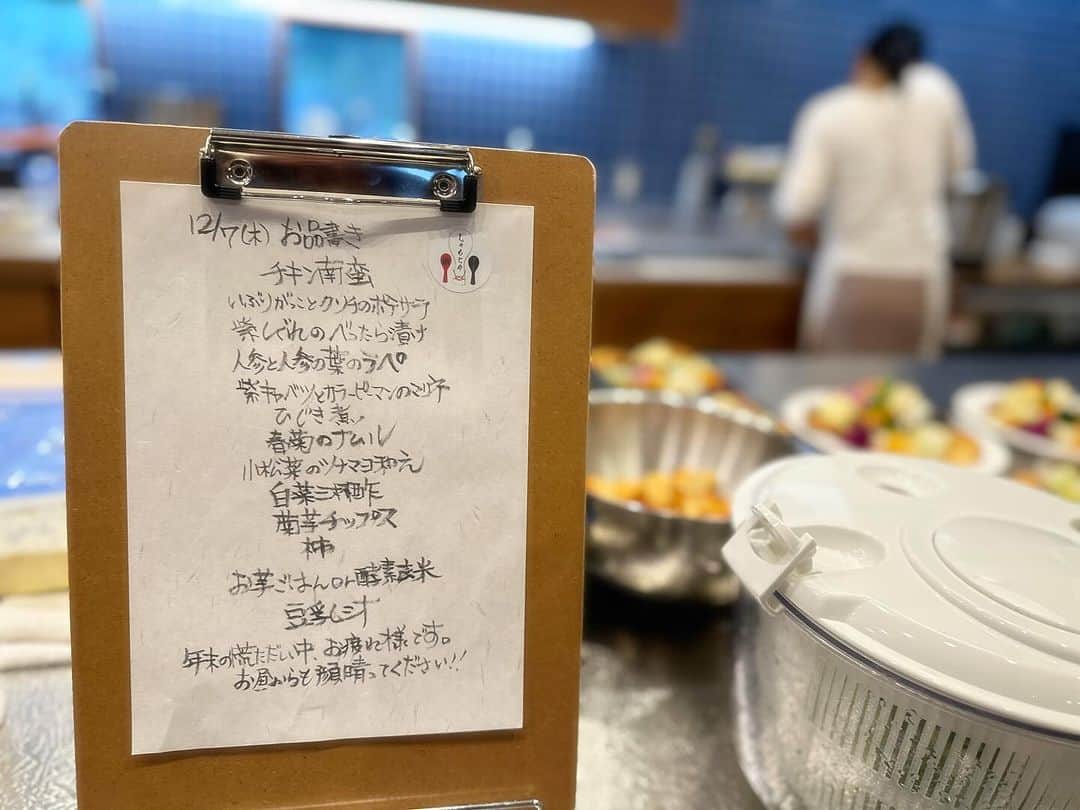 12/7(木) お品書き
チキン南蛮
いぶりがっことクリチのポテサラ
紫しぐれのべったら漬け
人参と人参の葉のラペ
紫キャベツとカラーピーマンのマリネ
ひじき煮
春菊のナムル
小松菜のツナマヨ和え
白菜三杯酢
菊芋チップス
柿
お芋ごはんor酵素玄米
豆乳
年末の慌ただしい中 お疲れ様です。
お昼からも顔晴ってください!!